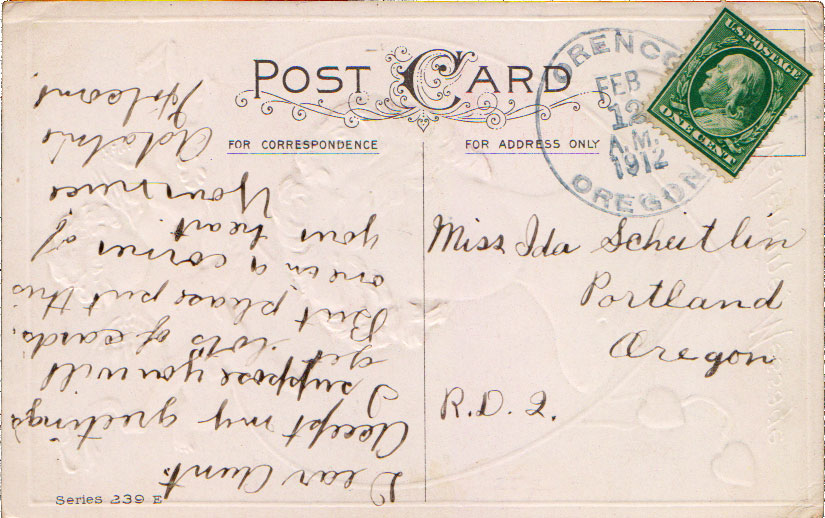 POST CARD
FOR CORRESPONDENCE
FOR ADDRESS ONLY
U.S. POSTAGE
ONE CENT
ORENCO
FEB
12
A.M.
1912
OREGON
Miss Ida Scheitlin
Portland
Oregon
R.D. 2.
Dear Aunt
Accept my greetings
I suppose you will
get lots of cards.
But please put this
one in a corner of
your heart.
Your niece
Series 239 E